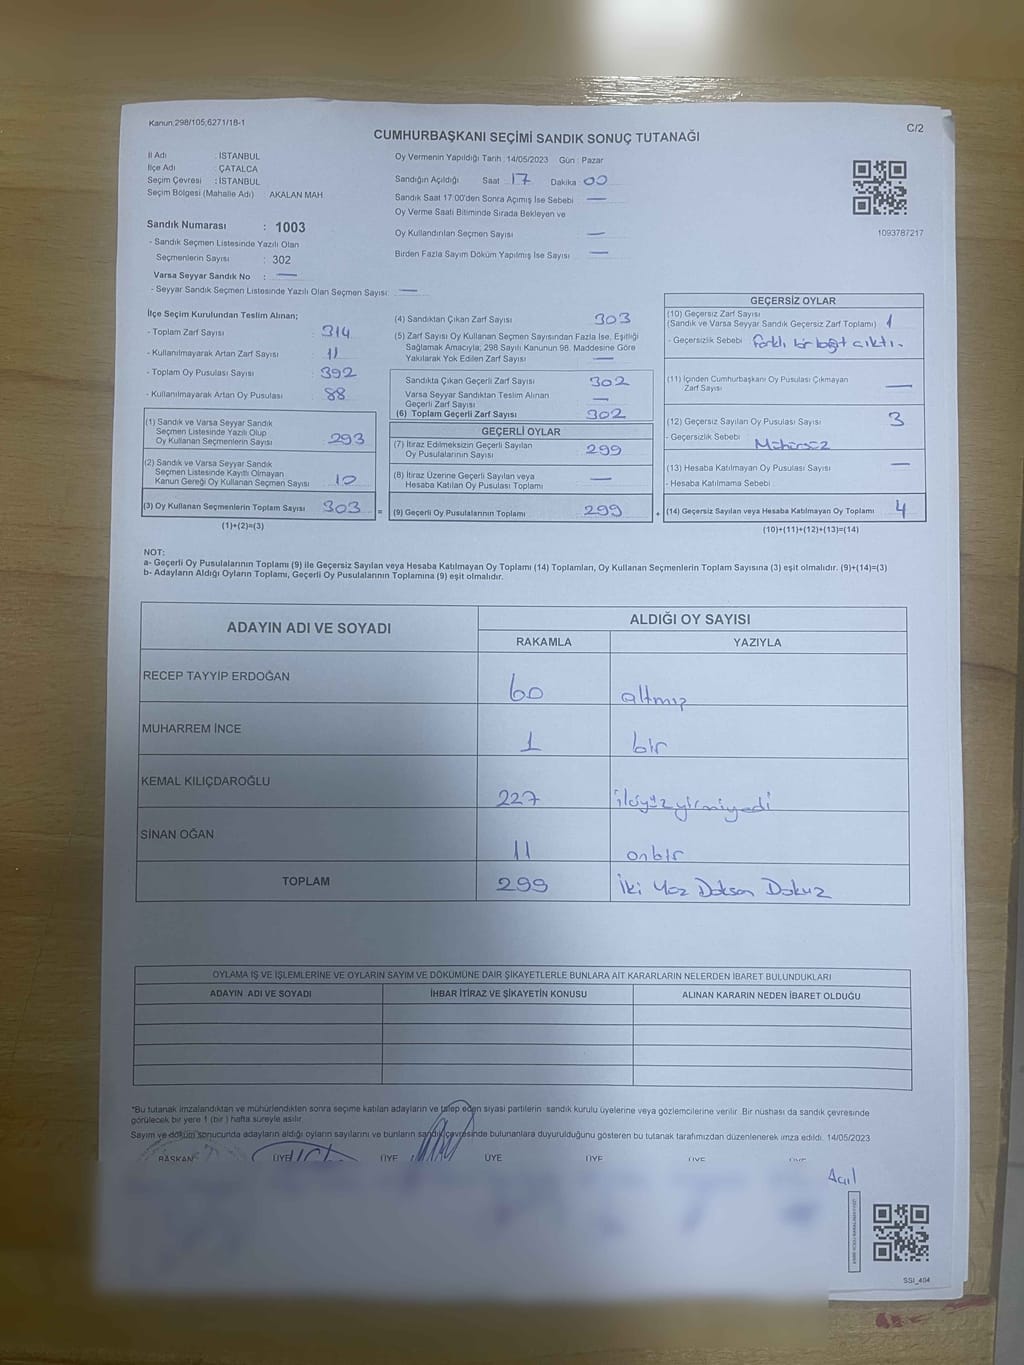 Kanun:298/105;6271/18-1
C/2
CUMHURBAŞKANI SEÇİMİ SANDIK SONUÇ TUTANAĞI
İl Adı : İSTANBUL
İlçe Adı : ÇATALCA
Seçim Çevresi : İSTANBUL
Seçim Bölgesi (Mahalle Adı) : AKALAN MAH
Oy Vermenin Yapıldığı Tarih : 14/05/2023 Gün : Pazar
Sandığın Açıldığı Saat 17 Dakika 00
Sandık Saat 17:00'den Sonra Açımış İse Sebebi —
Oy Verme Saati Bitiminde Sırada Bekleyen ve
Oy Kullandırılan Seçmen Sayısı —
Birden Fazla Sayım Döküm Yapılmış İse Sayısı —
1093787217
Sandık Numarası : 1003
- Sandık Seçmen Listesinde Yazılı Olan
Seçmenlerin Sayısı : 302
Varsa Seyyar Sandık No : —
- Seyyar Sandık Seçmen Listesinde Yazılı Olan Seçmen Sayısı: —
İlçe Seçim Kurulundan Teslim Alınan;
- Toplam Zarf Sayısı : 314
- Kullanılmayarak Artan Zarf Sayısı : 11
- Toplam Oy Pusulası Sayısı : 392
- Kullanılmayarak Artan Oy Pusulası : 88
(1) Sandık ve Varsa Seyyar Sandık
Seçmen Listesinde Yazılı Olup
Oy Kullanan Seçmenlerin Sayısı : 293
(2) Sandık ve Varsa Seyyar Sandık
Seçmen Listesinde Kayıtlı Olmayan
Kanun Gereği Oy Kullanan Seçmen Sayısı : 10
(3) Oy Kullanan Seçmenlerin Toplam Sayısı : 303 =
(1)+(2)=(3)
(4) Sandıktan Çıkan Zarf Sayısı 303
(5) Zarf Sayısı Oy Kullanan Seçmen Sayısından Fazla İse, Eşitliği
Sağlamak Amacıyla; 298 Sayılı Kanunun 98. Maddesine Göre
Yakılarak Yok Edilen Zarf Sayısı —
Sandıkta Çıkan Geçerli Zarf Sayısı 302
Varsa Seyyar Sandıktan Teslim Alınan
Geçerli Zarf Sayısı —
(6) Toplam Geçerli Zarf Sayısı 302
GEÇERLİ OYLAR
(7) İtiraz Edilmeksizin Geçerli Sayılan
Oy Pusulalarının Sayısı 299
(8) İtiraz Üzerine Geçerli Sayılan veya
Hesaba Katılan Oy Pusulası Toplamı —
(9) Geçerli Oy Pusulalarının Toplamı 299 +
GEÇERSİZ OYLAR
(10) Geçersiz Zarf Sayısı
(Sandık ve Varsa Seyyar Sandık Geçersiz Zarf Toplamı) 1
- Geçersizlik Sebebi Farklı bir kağıt çıktı.
(11) İçinden Cumhurbaşkanı Oy Pusulası Çıkmayan
Zarf Sayısı —
(12) Geçersiz Sayılan Oy Pusulası Sayısı 3
- Geçersizlik Sebebi Mühürsüz
(13) Hesaba Katılmayan Oy Pusulası Sayısı —
- Hesaba Katılmama Sebebi
(14) Geçersiz Sayılan veya Hesaba Katılmayan Oy Toplamı 4
(10)+(11)+(12)+(13)=(14)
NOT:
a- Geçerli Oy Pusulalarının Toplamı (9) ile Geçersiz Sayılan veya Hesaba Katılmayan Oy Toplamı (14) Toplamları, Oy Kullanan Seçmenlerin Toplam Sayısına (3) eşit olmalıdır. (9)+(14)=(3)
b- Adayların Aldığı Oyların Toplamı, Geçerli Oy Pusulalarının Toplamına (9) eşit olmalıdır.
ADAYIN ADI VE SOYADI
ALDIĞI OY SAYISI
RAKAMLA YAZIYLA
RECEP TAYYİP ERDOĞAN 60 altmış
MUHARREM İNCE 1 bir
KEMAL KILIÇDAROĞLU 227 ikiyüzyirmiyedi
SİNAN OĞAN 11 onbir
TOPLAM 299 İki Yüz Doksan Dokuz
OYLAMA İŞ VE İŞLEMLERİNE VE OYLARIN SAYIM VE DÖKÜMÜNE DAİR ŞİKAYETLERLE BUNLARA AİT KARARLARIN NELERDEN İBARET BULUNDUKLARI
ADAYIN ADI VE SOYADI İHBAR İTİRAZ VE ŞİKAYETİN KONUSU ALINAN KARARIN NEDEN İBARET OLDUĞU
*Bu tutanak imzalandıktan ve mühürlendikten sonra seçime katılan adayların ve talep eden siyasi partilerin sandık kurulu üyelerine veya gözlemcilerine verilir. Bir nüshası da sandık çevresinde
görülecek bir yere 1 (bir) hafta süreyle asılır.
Sayım ve döküm sonucunda adayların aldığı oyların sayılarını ve bunların sandık çevresinde bulunanlara duyurulduğunu gösteren bu tutanak tarafımızdan düzenlenerek imza edildi. 14/05/2023
BAŞKAN ÜYE ÜYE ÜYE ÜYE ÜYE ÜYE
SSI_404